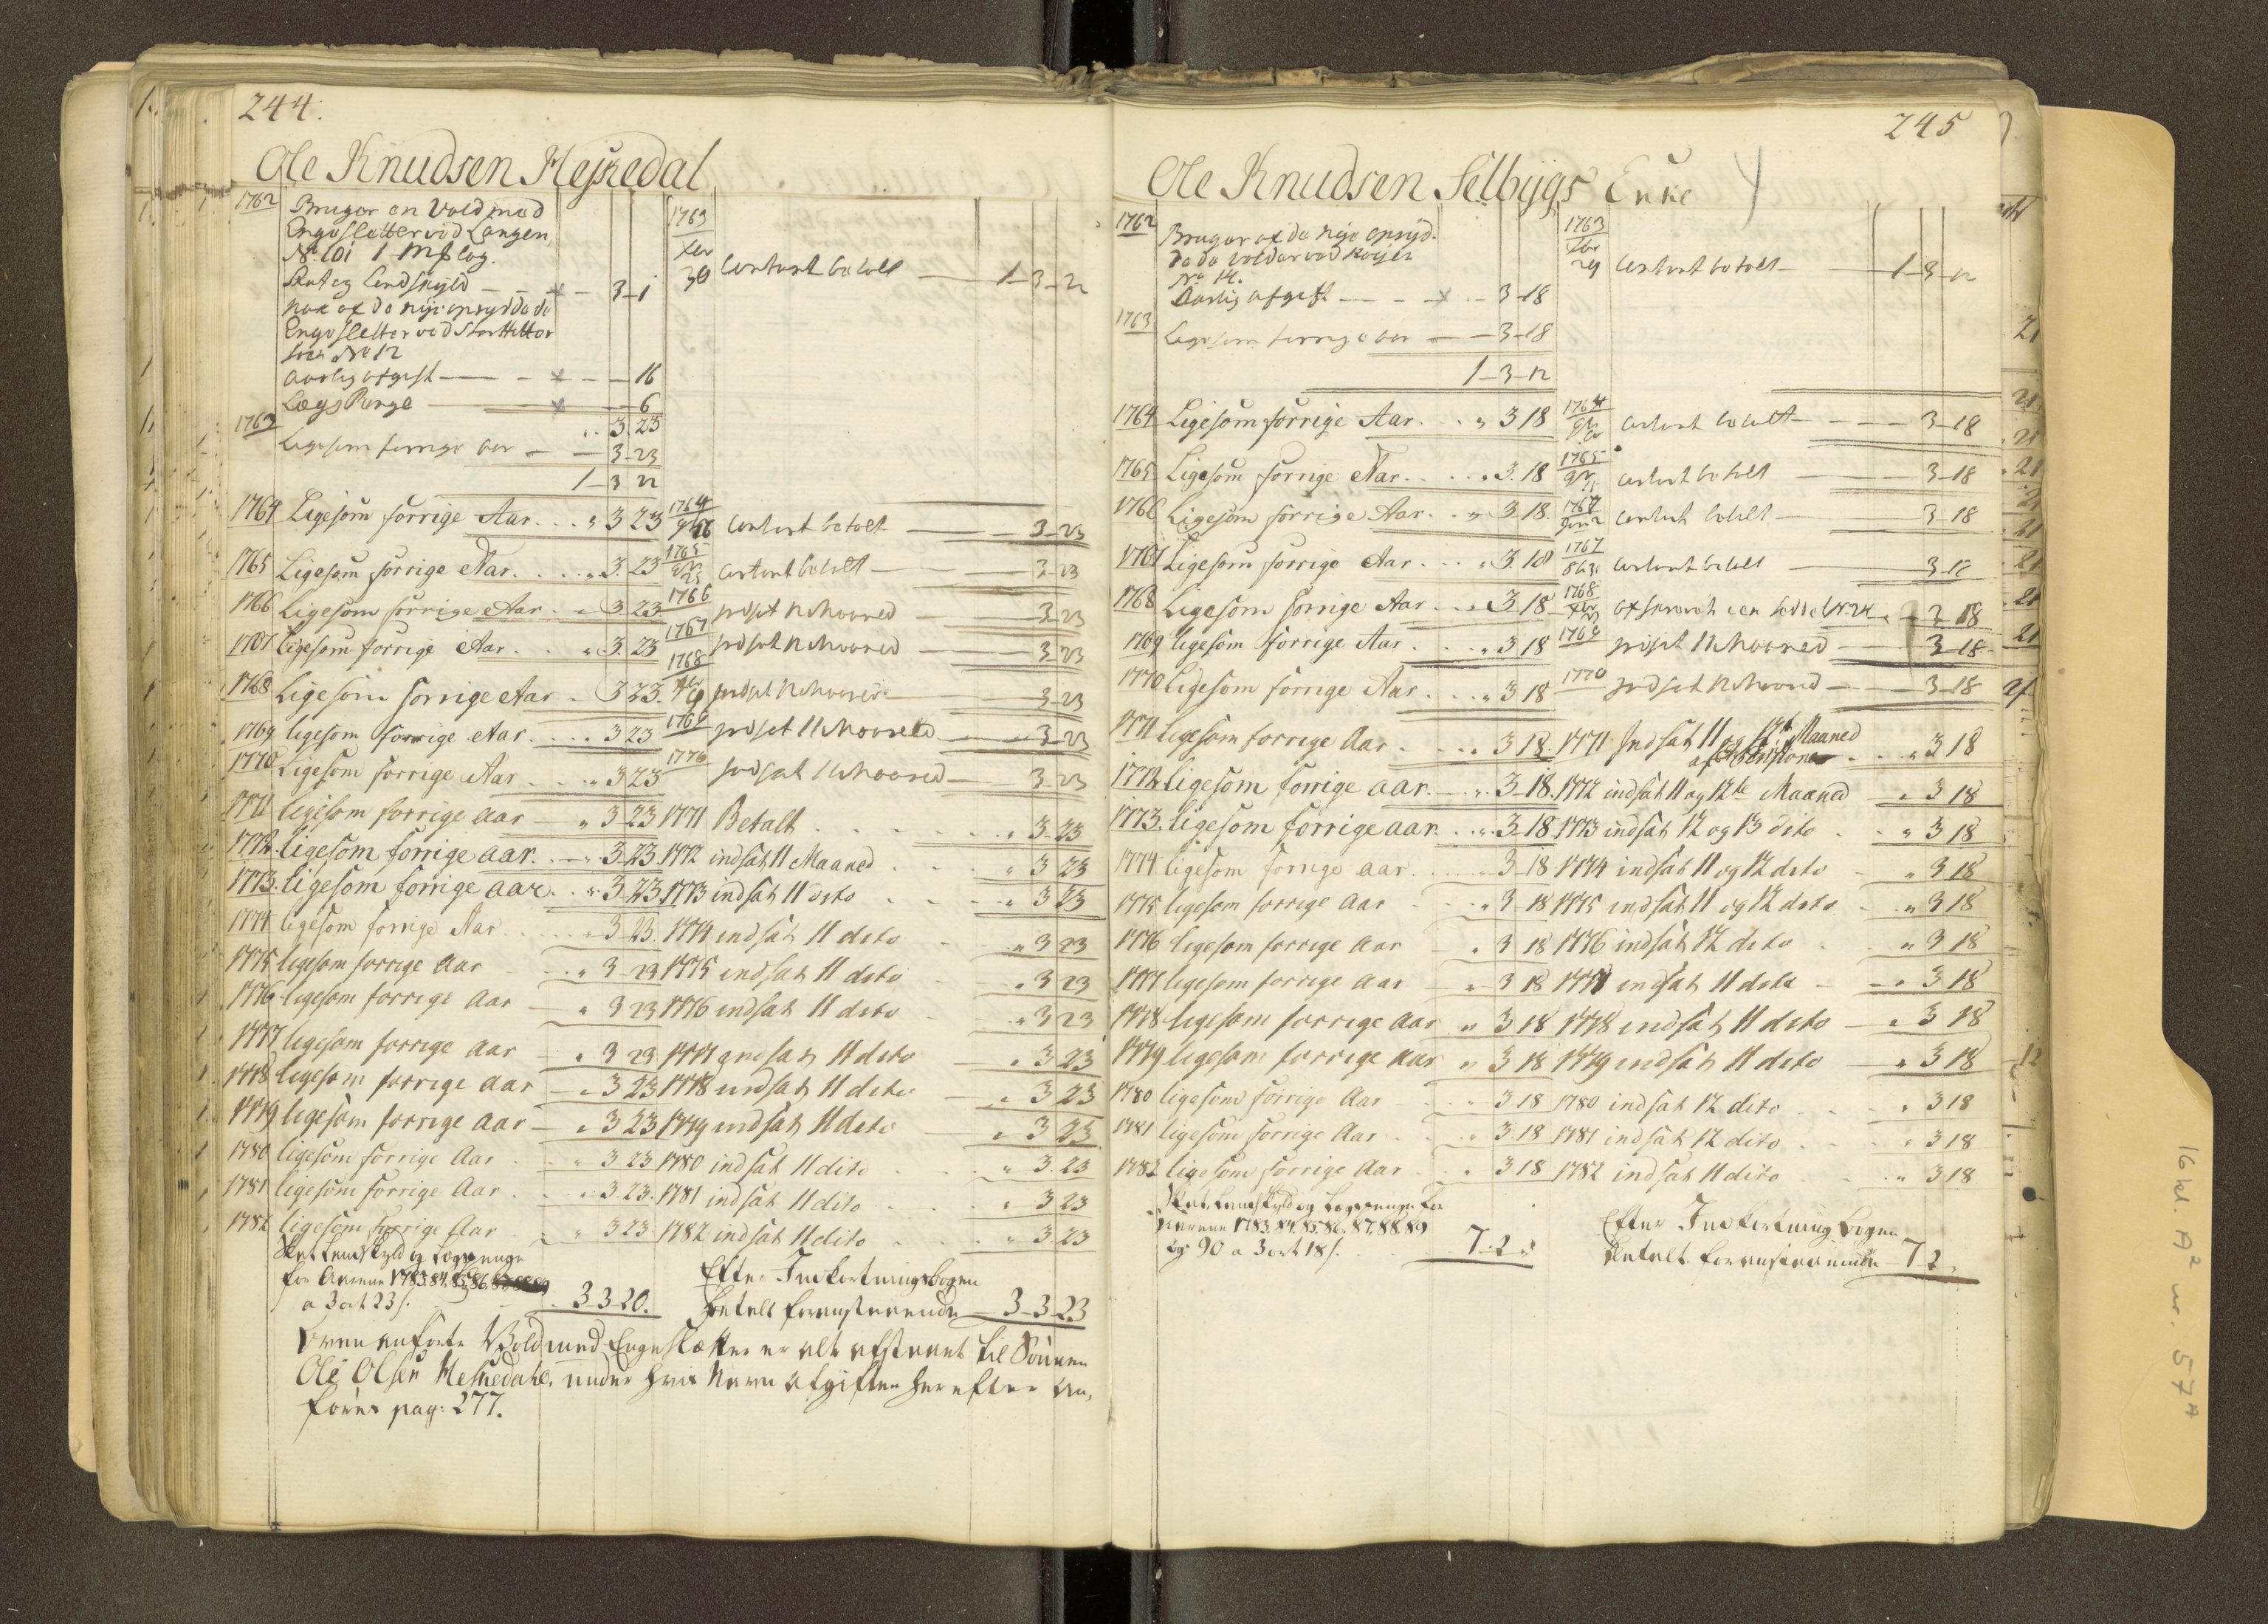 244.
Ole Knudsen Heskedal
1762 Bruger en Vold med
Engesletter ved Langen
No. 101 1 Mk laug.
Skat og Landskyld - - x - 3-1
Nok af de nye opryddede
Engesletter ved Storhitter
Søen No 12
Aarlig afgift - x - - 16
LægsPenge - x - 6
„. 3. 23
1763 Ligesom forrige Aar - - 3-23
1-3-22
1763
Xbr
30 Contant betalt - 1-3-22
1764 Ligesom forrige Aar. . . „ 3 23 1764 Contant betalt - 3-23
1765 Ligesom forrige Aar. . . . „ 3. 23 1765 Contant betalt - 3-23
1766 Ligesom forrige Aar. „ 3 23 1766 indsat 12 Maaned - 3-23
1767 Ligesom forrige Aar. . „ 3 23 1767 indsat 12 Maaned - 3-23
1768 Ligesom forrige Aar - 3 23. 1768 indsat 12 Maaned - 3-23
1769 ligesom forrige Aar. . . . 3 23 1769 indsat 11 Maaned - 3-23
1770 Ligesom forrige Aar . . . „ 3 23 1770 indsat 12 Maaned - 3-23
1771 ligesom forrige aar - „ 3 23 1771 Betalt . . . . . „ 3 23
1772. ligesom forrige aar. . - „. 3 23 1772 indsat 11 Maaned . . . „ 3 23
1773. ligesom forrige aar. . „. 3 23 1773 indsat 11 dito . . . „ 3 23
1774 ligesom forrige Aar . . . „ 3 23. 1774 indsat 11 dito - „ 3 23
1775 ligesom forrige Aar - . . „ 3-23 1775 indsat 11 dito - „ 3 23
1776 ligesom forrige Aar - „ 3 23 1776 indsat 11 dito - „ 3 23
1777 ligesom forrige Aar - „ 3 23 1777 indsat 11 dito - „ 3 23
1778 ligesom forrige Aar - „ 3 23 1778 indsat 11 dito - „ 3 23
1779 ligesom forrige Aar - „ 3 23 1779 indsat 11 dito - „ 3 23
1780 ligesom forrige Aar . . „ 3 23 1780 indsat 11 dito . . . „ 3. 23
1781 ligesom forrige Aar . . „ 3. 23. 1781 indsat 11 dito . . . „ 3 23
1782 ligesom forrige Aar . . „ 3 23. 1782 indsat 11 dito . . . „ 3. 23
Skat Landskyld og Lægspenge
for Aarene 1783. 84. 85. 86.
a 3 ort 23 s. . . 3-3-20.
Efter Indkortningsbogen
betalt foranstaaende - 3-3-23
Oven anførte Vold med Engeslætter er alt afstaaet til Sønnen
Ole Olsen Heskedahl, under hvis Navn afgiften herefter an,
føres pag: 277.
245
Ole Knudsen Selbygs Enke
1762 Bruger af de nye opryd-
dede volder ved
No. 14.
Aarlig afgift - - x - 3-18
1763 Ligesom forrige aar - - 3-18
1-3-12
1763
Xbr
29 Contant betalt - 1-3-12
1764 Ligesom forrige Aar. . . „ 3 18 1764 Contant betalt - - - 3-18
1765 Ligesom forrige Aar. . . . „ 3. 18 1765 Contant betalt - 3-18
1766 Ligesom forrige Aar. . „ 3 18. 1767 Contant betalt - 3-18
1767 Ligesom forrige Aar. . . „ 3 18 1767 Contant betalt - 3-18
1768 Ligesom forrige Aar. . . „ 3 18 1768 afskrevet een Seddel No. 24 . 3 18
1769 ligesom forrige Aar. . . „ 3 18 1769 indsat 12 Maaned - 3-18
1770 Ligesom forrige Aar. . . „ 3 18 1770 indsat 12 Maaned - 3-18
1771 ligesom forrige Aar. . . „ 3 18. 1771 Indsat 11 og 12te Maaned
af Pensionen . . . „ 3 18
1772 ligesom forrige aar. - „. 3-18. 1772 indsat 11 og 12te Maaned - „ 3 18
1773. ligesom forrige aar. . . „. 3-18 1773 indsat 12 og 13 dito . . „ 3 18
1774 ligesom forrige aar. . . . 3-18 1774 indsat 11 og 12 dito - „ 3 18
1775 ligesom forrige Aar . . „ 3-18 1775 indsat 11 og 12 dito . „ 3 18
1776 ligesom forrige Aar - „ 3 18 1776 indsat 12 dito . „ 3 18
1777 ligesom forrige Aar - „ 3 18 1777 indsat 11 dito - „ 3 18
1778 ligesom forrige Aar „ 3 18 1778 indsat 11 dito - „ 3 18
1779 ligesom forrige Aar „ 3 18 1779 indsat 11 dito - „ 3 18
1780 ligesom forrige Aar . . „ 3 18 1780 indsat 12 dito . . . „ 3 18
1781 ligesom forrige Aar . . „ 3. 18 1781 indsat 12 dito . . . „ 3 18
1782 ligesom forrige Aar . . „ 3 18 1782 indsat 11 dito . . „ 3 18
Skat Landskyld og Lægspenge for
Aarene 1783. 84. 85. 86. 87. 88. 89
og 90 a 3 ort 18 s. . . 7. 2. „
Efter Indkortning Bogen
betalt foranstaaende 7 2.
16 kl. A² nr. 57 A